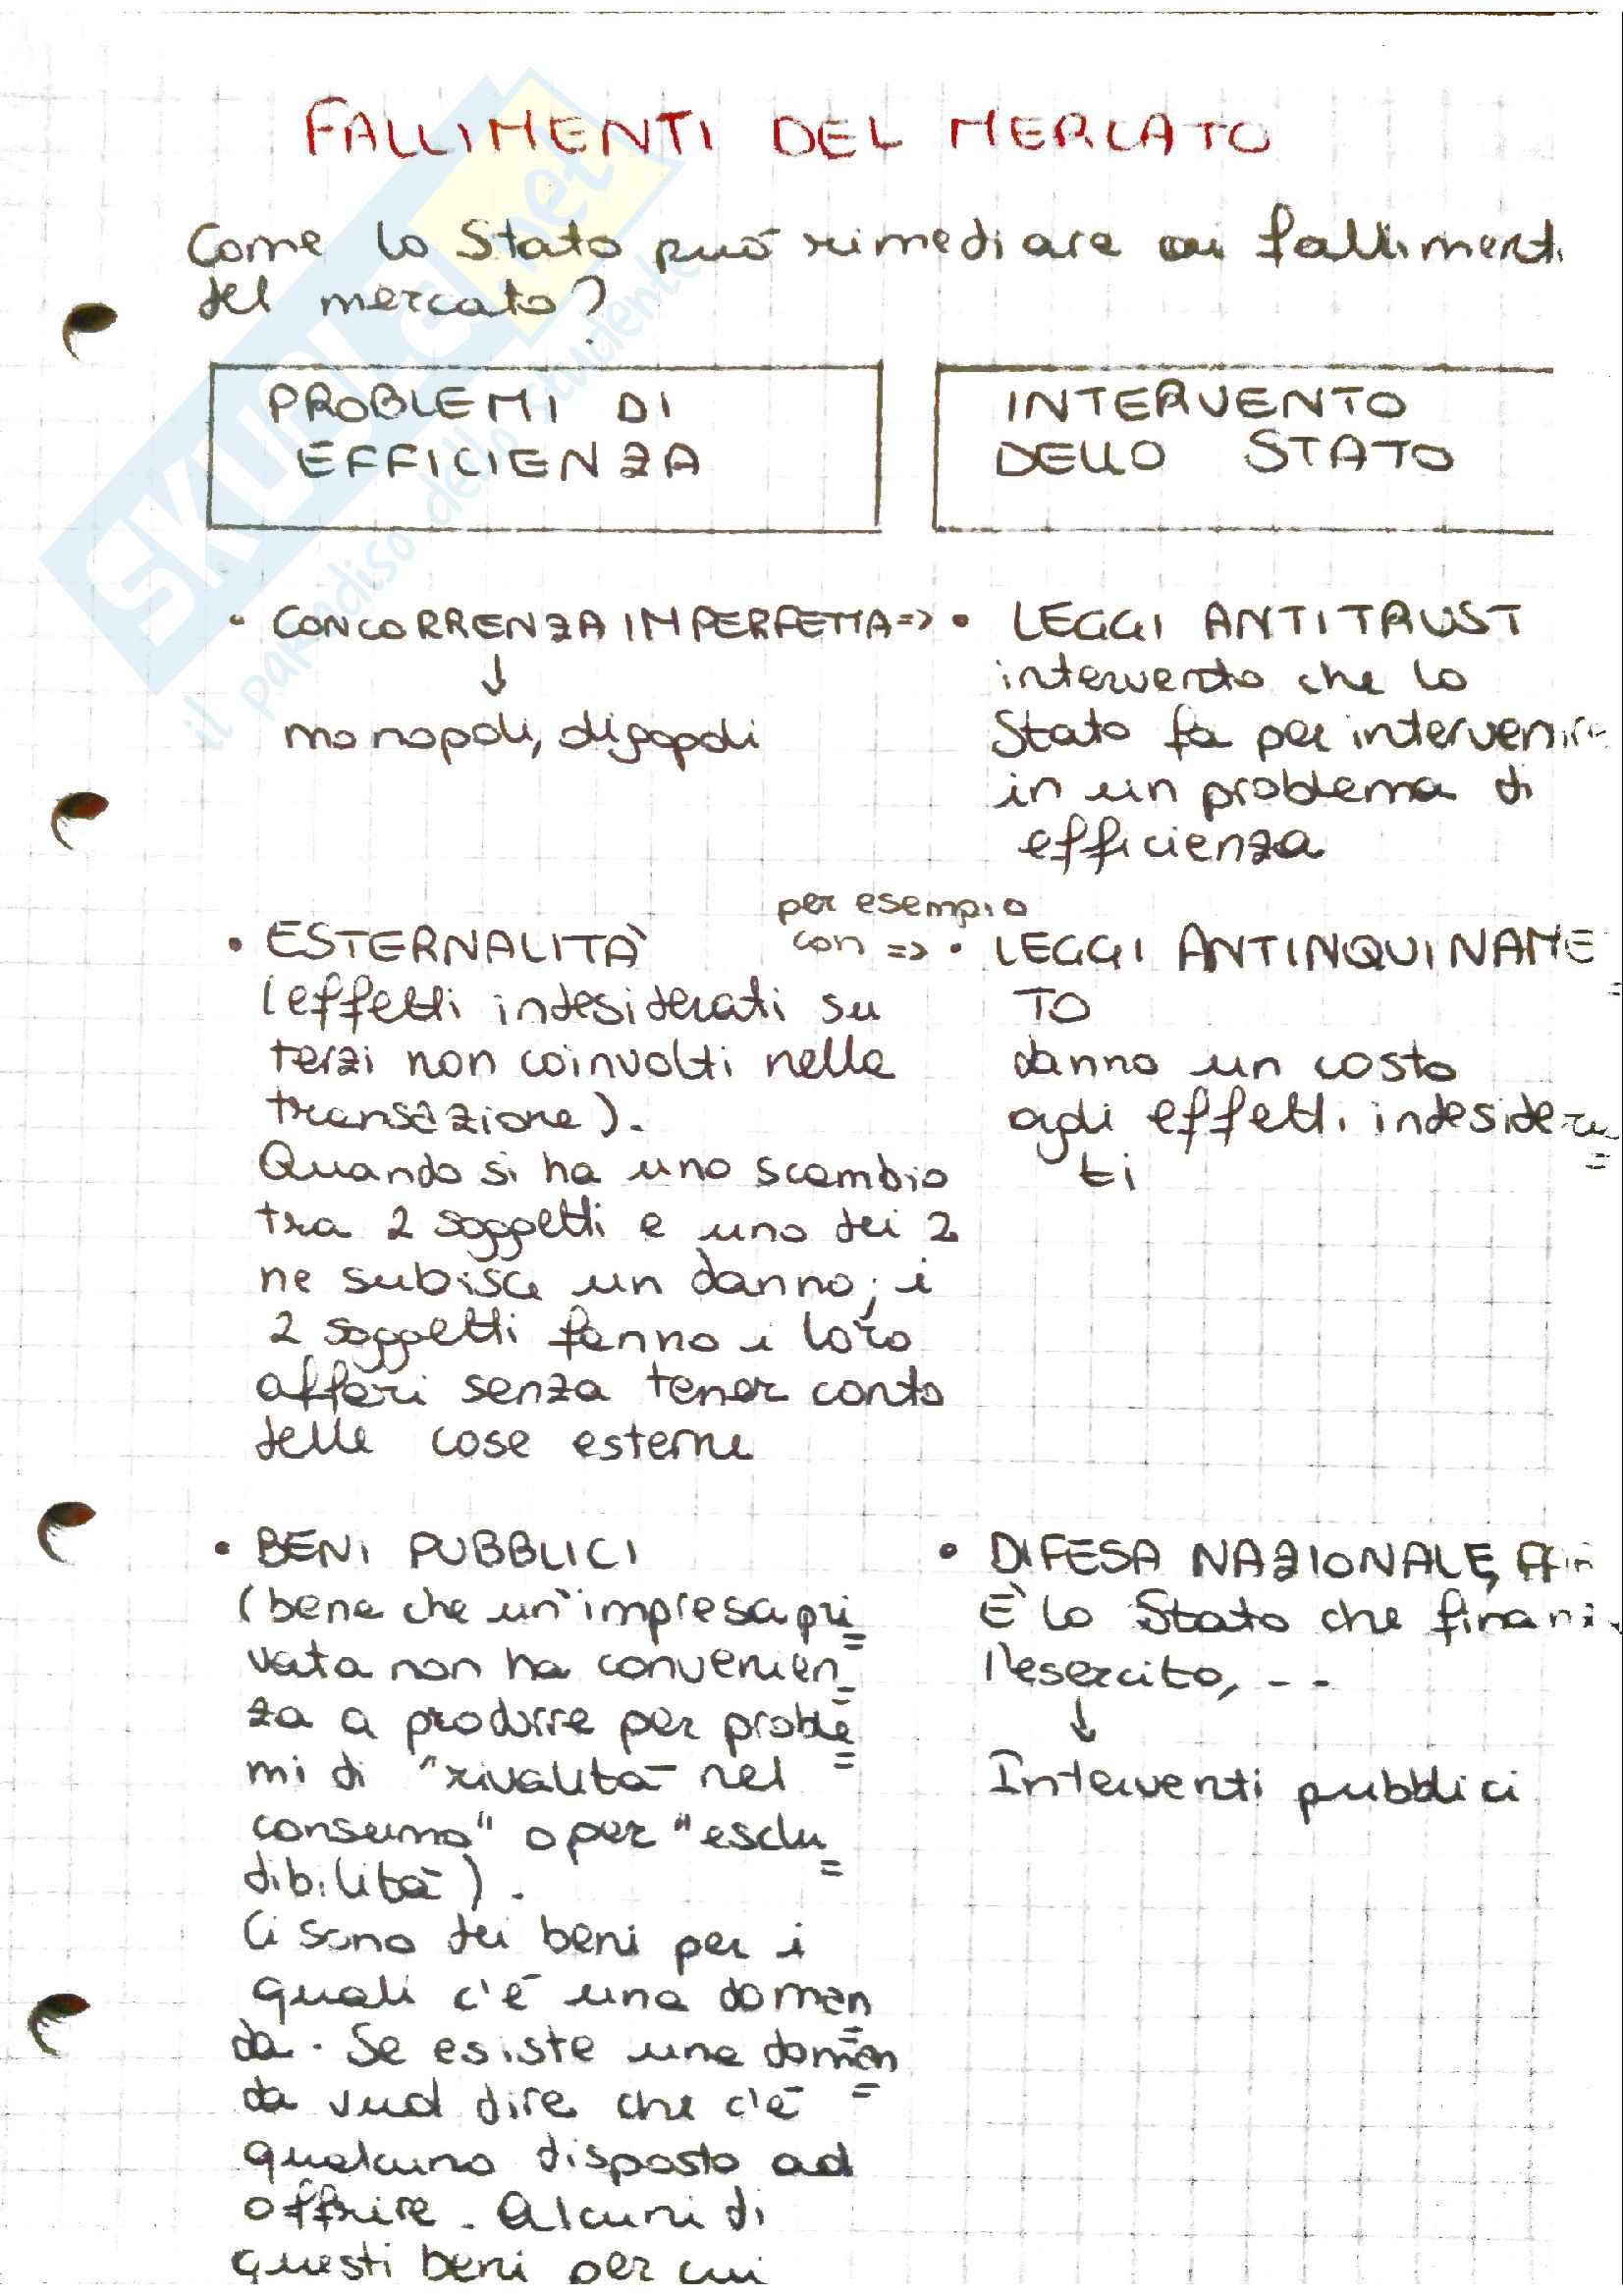 FALLIMENTI DEL MERCATO
Come lo Stato può rimediare ai fallimenti
del mercato?
PROBLEMI DI
EFFICIENZA
INTERVENTO
DELLO STATO
• CONCORRENZA IMPERFETTA => 
↓
monopoli, oligopoli
• LEGGI ANTITRUST
intervento che lo
Stato fa per intervenire
in un problema di
efficienza
• ESTERNALITÀ
per esempio
con =>
(effetti indesiderati su
terzi non coinvolti nella
transazione).
Quando si ha uno scambio
tra 2 soggetti e uno dei 2
ne subisce un danno; i
2 soggetti fanno i loro
affari senza tener conto
delle cose esterne
• LEGGI ANTINQUINAME
TO
danno un costo
agli effetti indesidera
ti
• BENI PUBBLICI
(bene che un'impresa pri
vata non ha convenien
za a produrre per proble
mi di "rivalità nel
consumo" o per "esclu
dibilità).
Ci sono dei beni per i
quali c'è una doman
da. Se esiste una doman
da vuol dire che c'è
qualcuno disposto ad
offrire. Alcuni di
questi beni per cui
• DIFESA NAZIONALE,
È lo Stato che
l'esercito, ---
↓
Interventi pubblici
SKUOLA.net
il paradiso dello studente